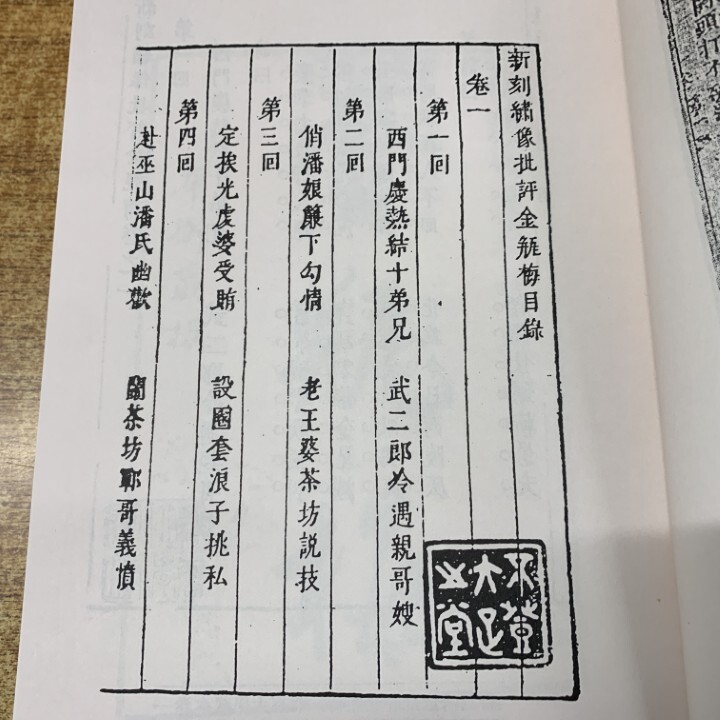 新刻繡像批評金瓶梅目錄
卷一
第一回
西門慶熱結十弟兄 武二郎冷遇親哥嫂
第二回
俏潘娘簾下勾情 老王婆茶坊説技
第三回
定挨光虔婆受賄 設圈套浪子挑私
第四回
赴巫山潘氏幽歡 鬧茶坊鄆哥義憤